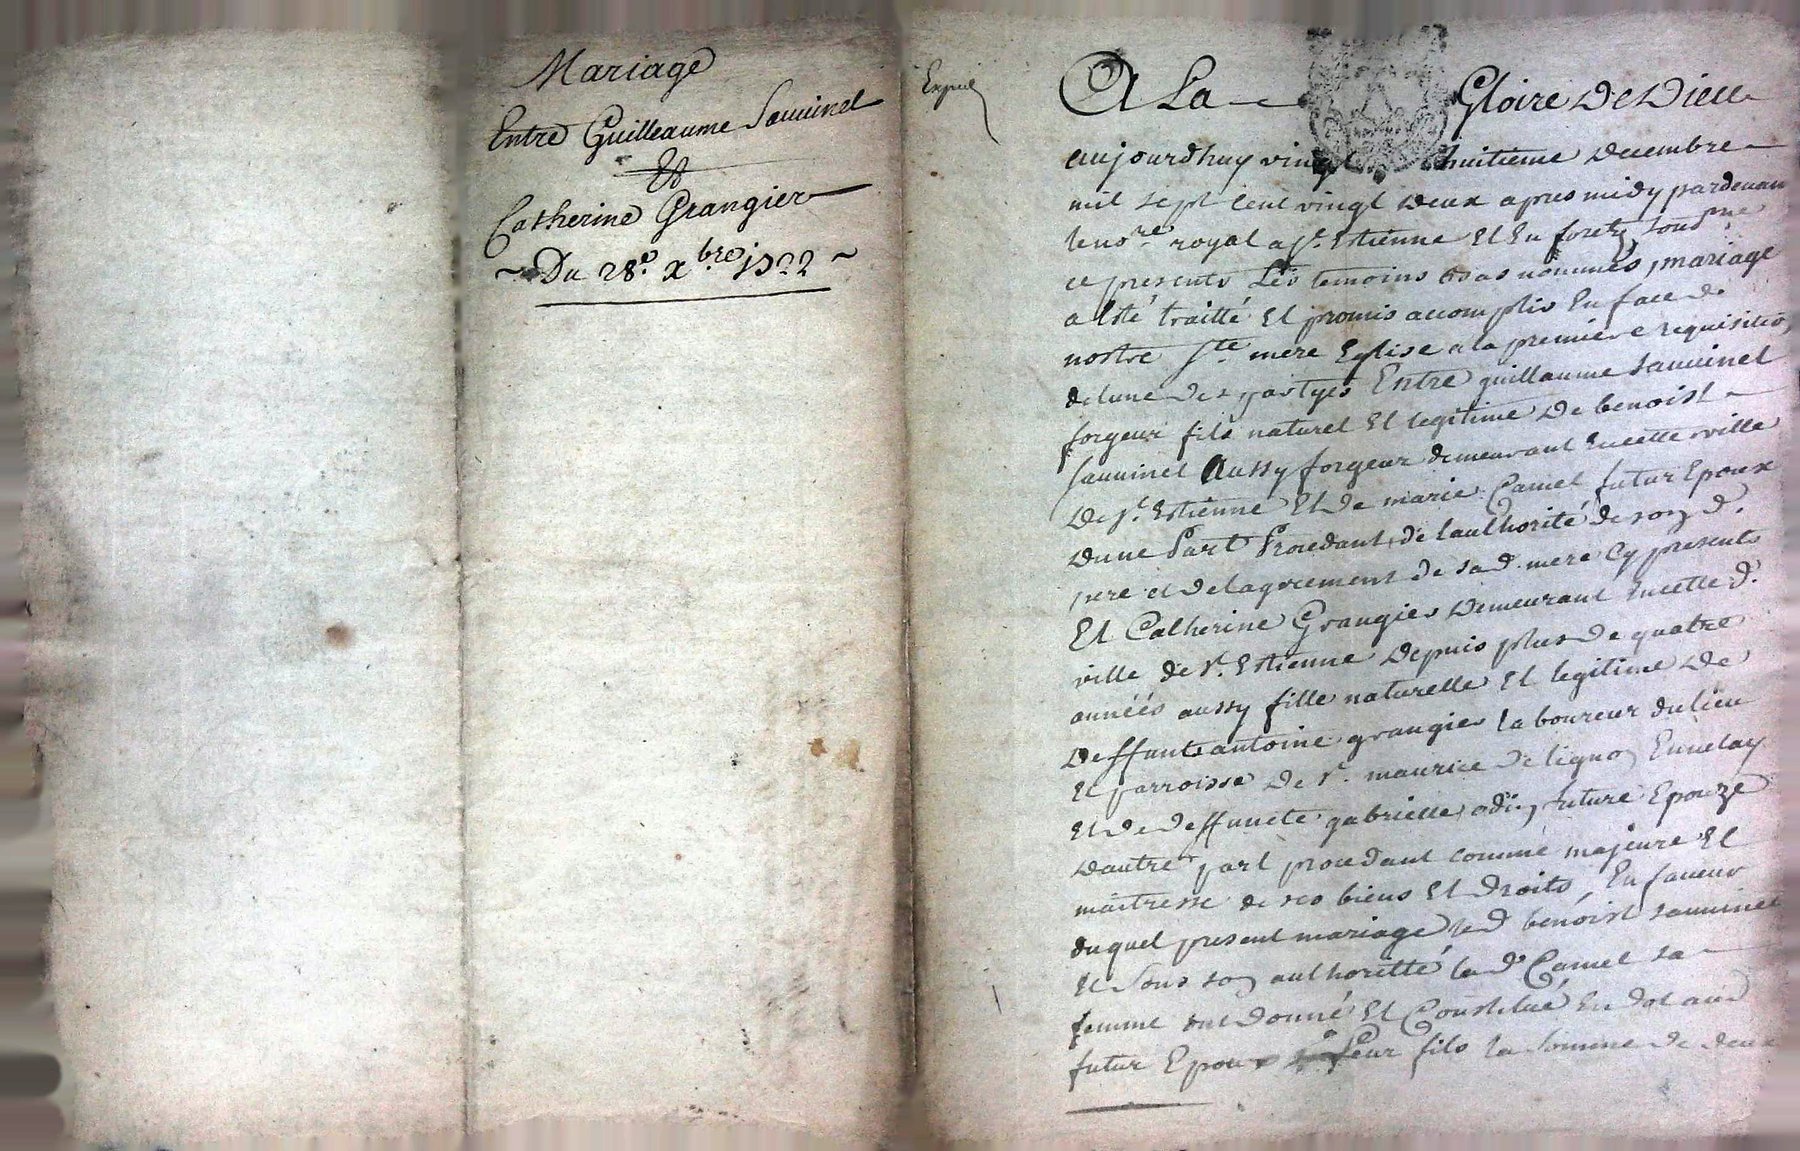 Mariage
Entre Guilleaume Sauuinel
Et
Catherine Grangier
~ Du 28.e Xbre 1722 ~
Expié
A La Gloire De Dieu
aujourdhuy vingt huitieme decembre
mil sept cent vingt deux apres midy pardevan
le nore. royal a St. Estienne Et En foretz sous.ne
ce presents Les temoins bas nommés, mariage
a Esté traitté Et promis accomplir En face de
nostre Ste. mere Eglise a la premiere requisitiō
de lune des partyes Entre guillaume sauuinel
forgeur fils naturel Et legitime De benoist
sauuinel Aussy forgeur demeurant En cette ville
De St. Estienne Et De marie Camel futur Epoux
Dune Part Procedant de lauthorité de son d.
pere et de lagreement de sad. mere Cy presents
Et Catherine Grangier Demeurant En cette d.
ville de St. Estienne Depuis plus De quatre
années aussy fille naturelle Et legitime De
Deffunt antoine grangier laboureur du lieu
Et parroisse De St. maurice De lignon En velay
Et De Deffuncte gabrielle future Epouze
Dautre part procedant comme majeure Et
maitresse de ses biens Et Droits, En faueur
duquel present mariage led. benoist sauuinel
Et sous son authoritté la de. Camel sa
femme ont Donné Et Constitué En dot aud
futur Epoux Leur fils la somme De deux